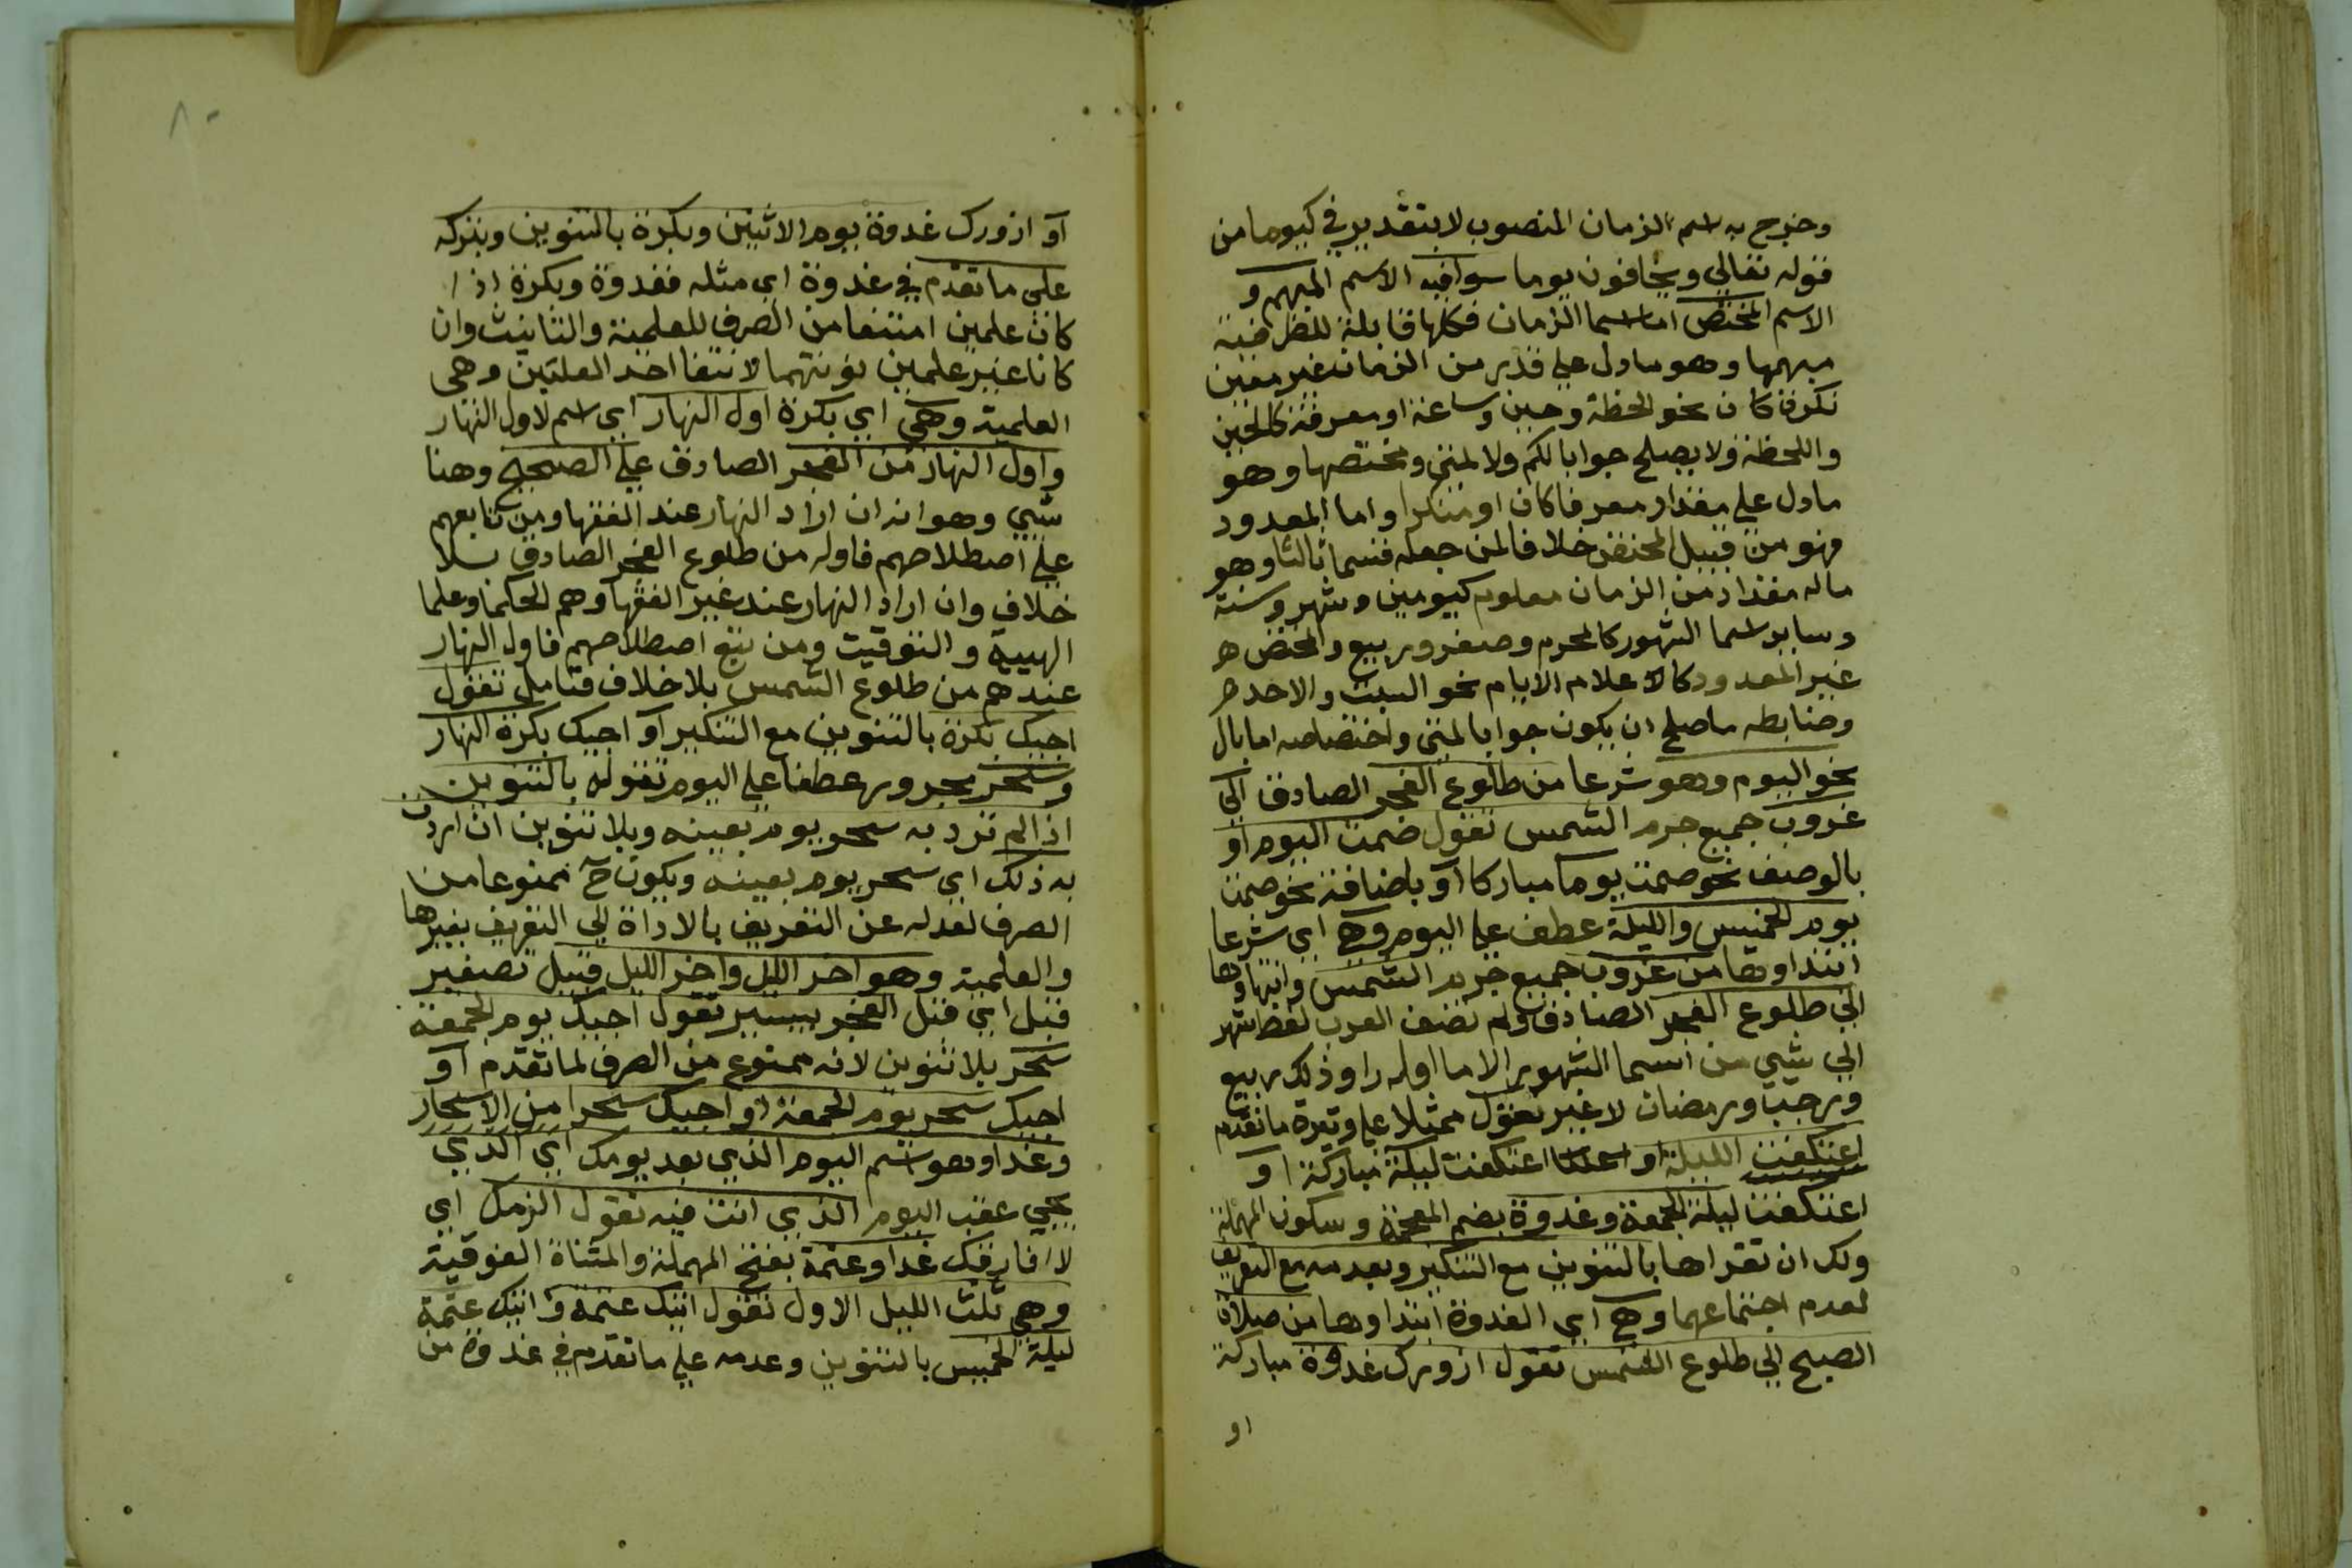 وخرج به اسم الزمان المنصوب لا بتقدير في كيوما من
قوله تعالي ويخافون يوما سوا فيه الاسم المبهم و
الاسم المختص اما اسما الزمان فكلها قابلة للظرفية
مبهمها وهو ما دل علي قدر من الزمان غير معين
نكرة كان نحو لحظة وحين وساعة او معرفة كالحين
واللحظة ولا يصلح جوابا لكم ولا لمتي ومختصها وهو
ما دل علي مقدار معرفا كان او منكرا واما المعدود
فهو من قبيل المختص خلافا لمن جعله قسما ثالثا وهو
ما له مقدار من الزمان معلوم كيومين وشهر وسنة
وساير اسما الشهور كالمحرم وصفر وربيع والمختص
غير المعدود كالاعلام الايام نحو السبت والاحد
وضابطه ما صلح ان يكون جوابا لمتي واختصاصه اما بال
نحو اليوم وهو شرعا من طلوع الفجر الصادق الي
غروب جميع جرم الشمس تقول صمت اليوم او
بالوصف نحو صمت يوما مباركا او باضافة نحو صمت
يوم الخميس والليلة عطف علي اليوم وهي اي شرعا
ابتداوها من غروب جميع جرم الشمس وانتهاوها
الي طلوع الفجر الصادق ولم تضف العرب لفظ شهر
الي شيي من اسما الشهور الا ما اوله را وذلك ربيع
ورجب ورمضان لا غير تقول ممثلا علي وتيرة ما تقدم
اعتكفت الليلة او اعتكفت ليلة مباركة او
اعتكفت ليلة الجمعة وغدوة بضم المعجمة وسكون المهملة
ولك ان تقراها بالتنوين مع التنكير وبعدمه مع التعريف
لعدم اجتماعهما وهي اي الغدوة ابتداوها من صلاة
الصبح الي طلوع الشمس تقول ازورك غدوة مباركة
او
٨٠
او ازورك غدوة يوم الاثنين وبكرة بالتنوين وبتركه
علي ما تقدم في غدوة اي مثله فغدوة وبكرة اذا
كان علمين امتنعا من الصرف للعلمية والتانيث وان
كانا غير علمين نونتهما لانتفا احد العلتين وهي
العلمية وهي اي بكرة اول النهار اي اسم لاول النهار
واول النهار من الفجر الصادق علي الصحيح وهنا
شيي وهو انه ان اراد النهار عند الفقها ومن تابعهم
علي اصطلاحهم فاوله من طلوع الفجر الصادق بلا
خلاف وان اراد النهار عند غير الفقها وهم الحكما وعلما
الهيية والتوقيت ومن تبع اصطلاحهم فاول النهار
عندهم من طلوع الشمس بلا خلاف فتامل تقول
اجيك بكرة بالتنوين مع التنكير او اجيك بكرة النهار
وسحر مجرور عطفا علي اليوم تقوله بالتنوين
اذا لم ترد به سحر يوم بعينه وبلا تنوين ان اردت
به ذلك اي سحر يوم بعينه ويكون ح ممنوعا من
الصرف لعدله عن التعريف بالاداة الي التعريف بغيرها
والعلمية وهو اخر الليل واخر الليل قبيل تصغير
قبل اي قبل الفجر بيسير تقول اجيك يوم الجمعة
سحر بلا تنوين لانه ممنوع من الصرف لما تقدم او
اجيك سحر يوم الجمعة او اجيك سحرا من الاسحار
وغدا وهو اسم اليوم الذي بعد يومك اي الذي
يجي عقب اليوم الذي انت فيه تقول الزمك اي
لا افارقك غدا وعتمة بفتح المهملة والمثناة الفوقية
وهي ثلث الليل الاول تقول اتيك عتمة و اتيك عتمة
ليلة الخميس بالتنوين وعدمه علي ما تقدم في غدوة من